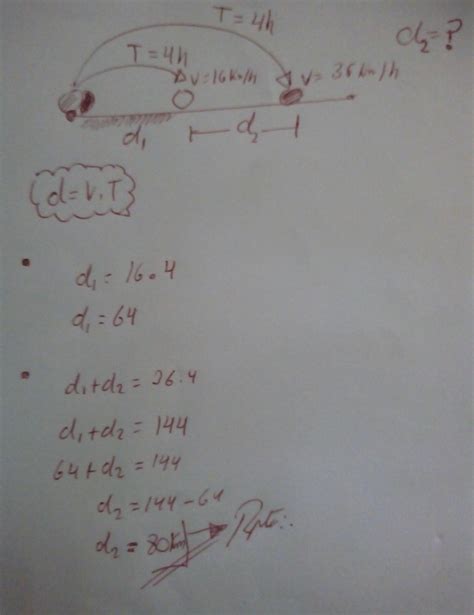 T = 4h
d₂ = ?
T = 4h
V = 16 km/h
V = 36 km/h
d₁
d₂
d = V . T
• d₁ = 16 . 4
d₁ = 64
• d₁ + d₂ = 36 . 4
d₁ + d₂ = 144
64 + d₂ = 144
d₂ = 144 - 64
d₂ = 80 Km → Rpta:.